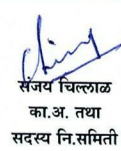 संजय चिल्लाळ
का.अ. तथा
सदस्य नि.समिती